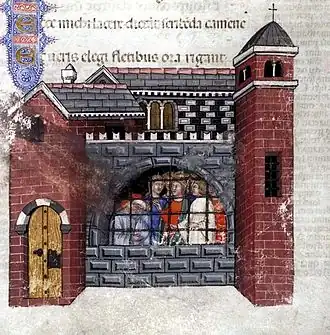 cce michi lacere dictāt scribēda camene
ueris elegi fletibus ora rigant